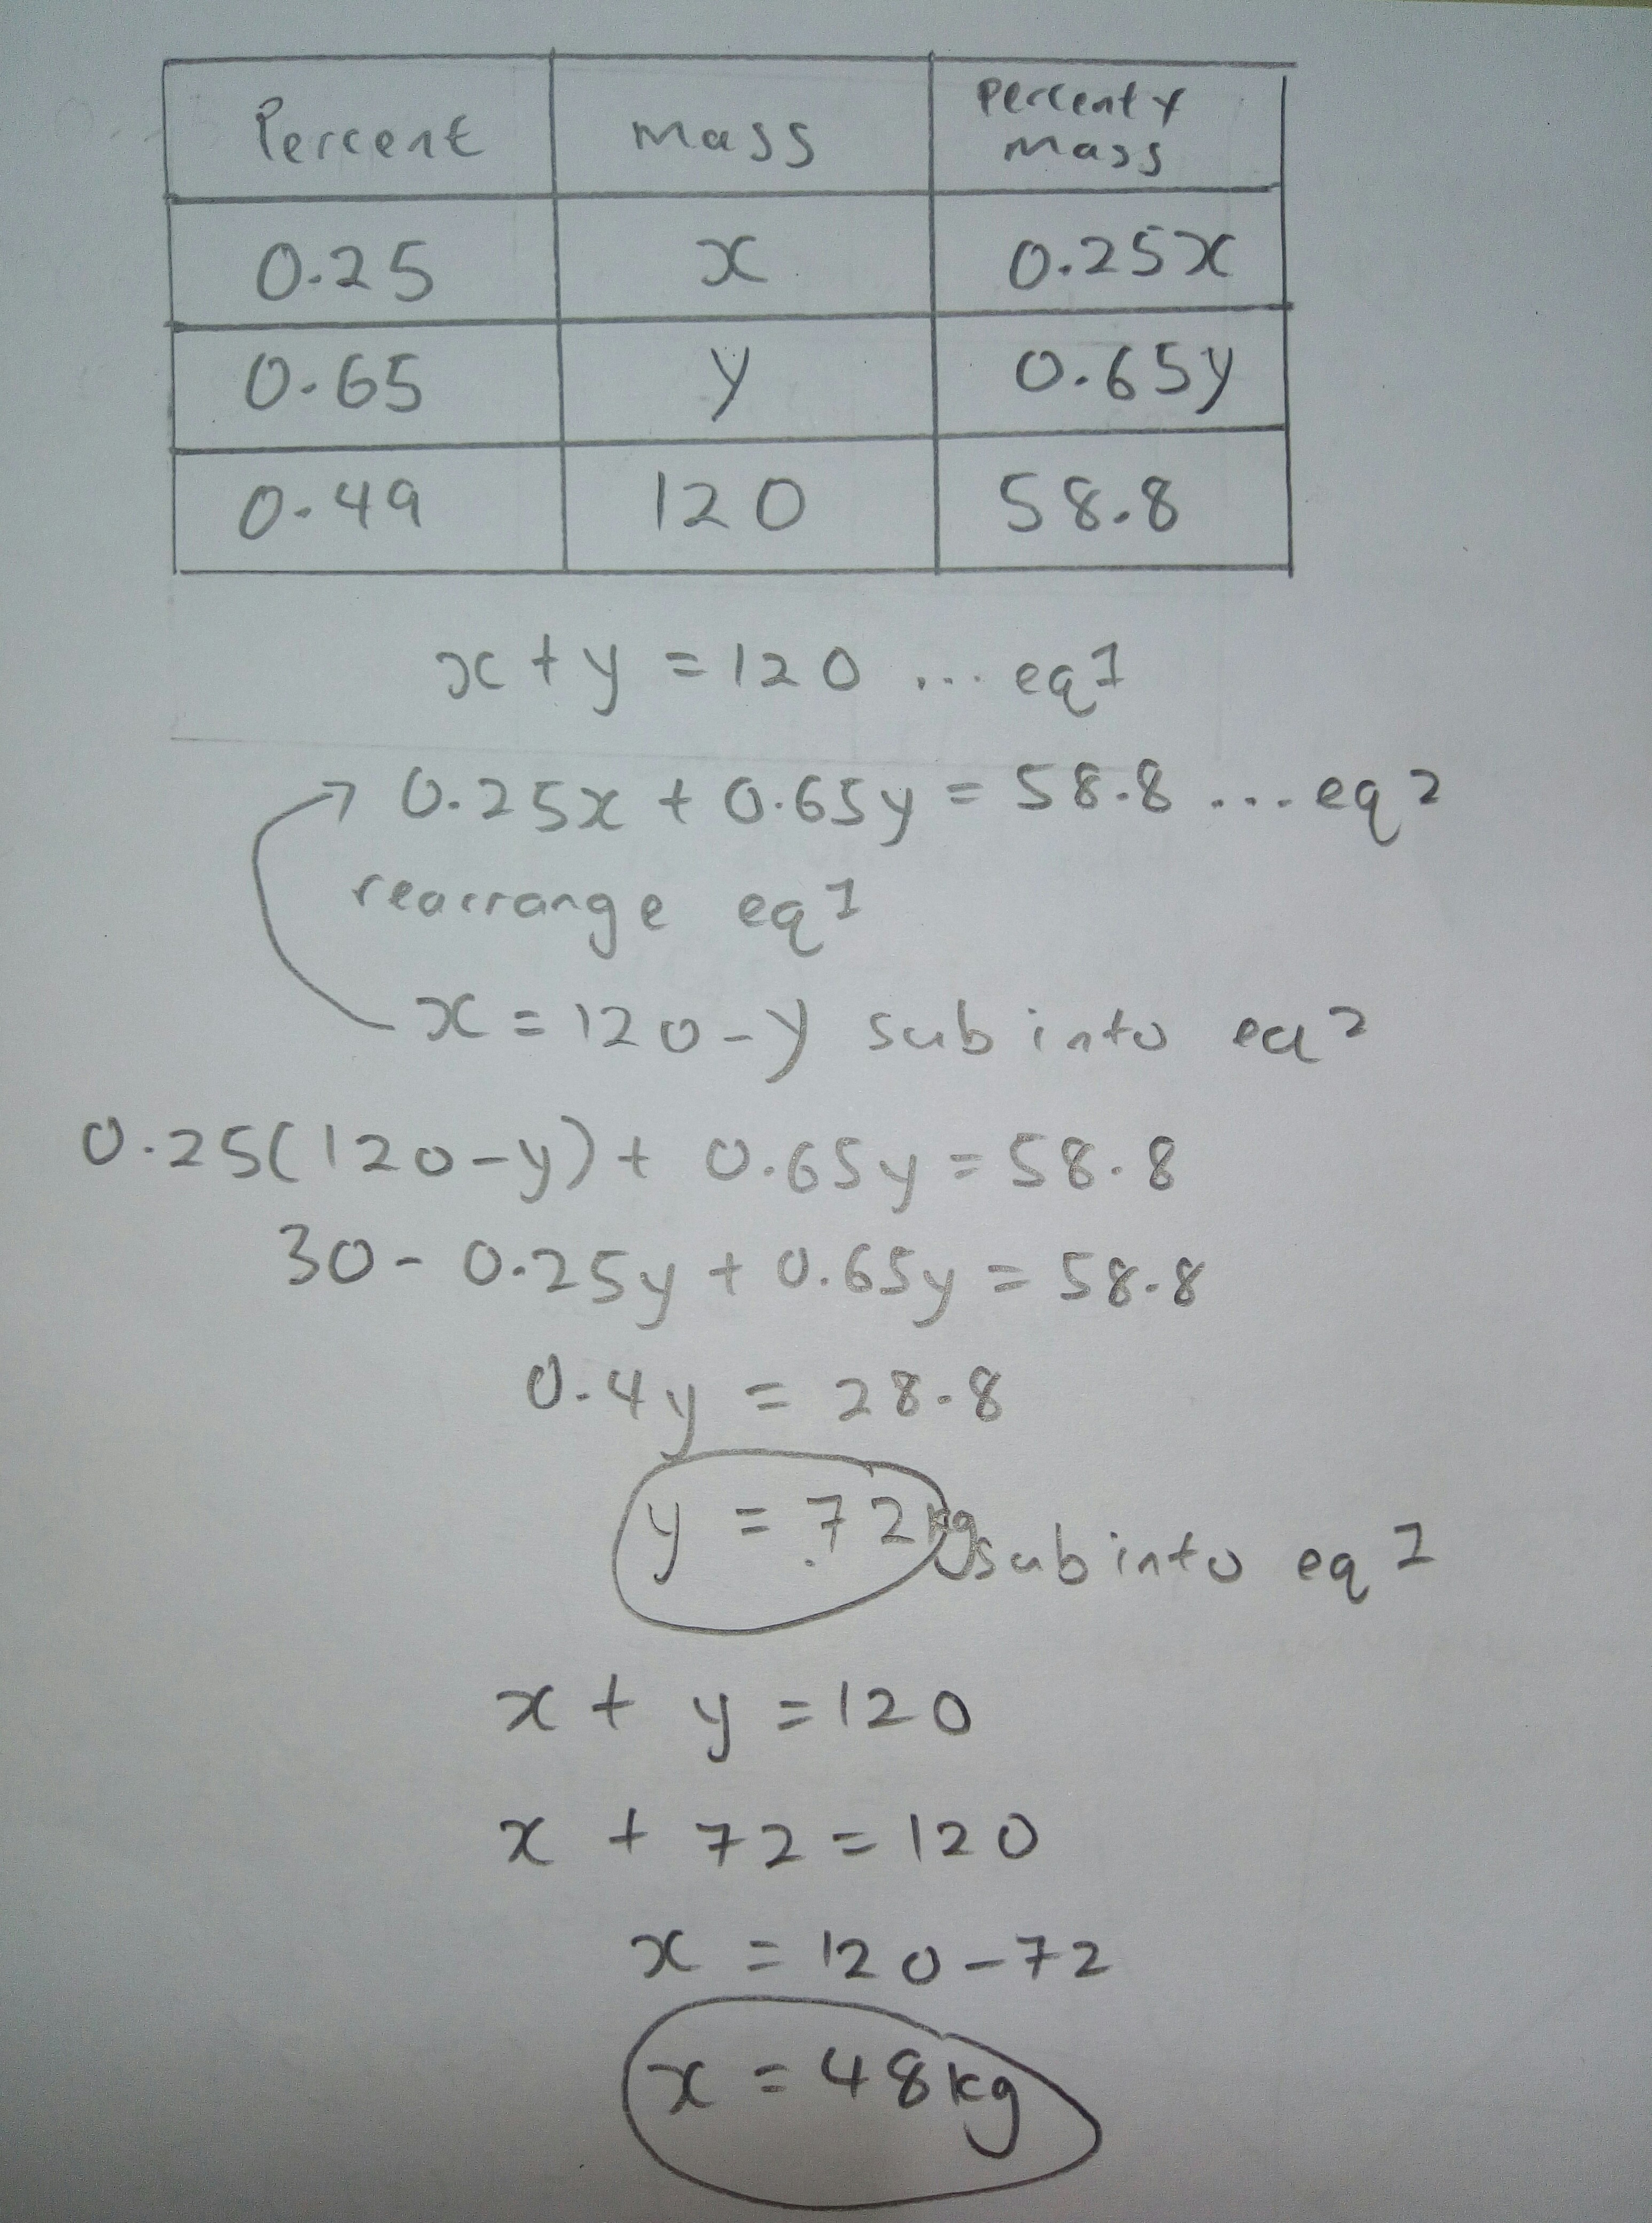 Percent mass Percent x
mass
0.25 x 0.25x
0.65 y 0.65y
0.49 120 58.8
x + y = 120 ... eq 1
0.25x + 0.65y = 58.8 ... eq 2
rearrange eq 1
x = 120 - y sub into eq 2
0.25(120-y) + 0.65y = 58.8
30 - 0.25y + 0.65y = 58.8
0.4y = 28.8
y = 72kg sub into eq 1
x + y = 120
x + 72 = 120
x = 120 - 72
x = 48kg